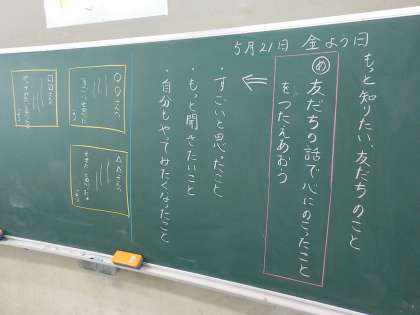 5月21日 金よう日
もっと知りたい、友だちのこと
め 友だちの話で心にのこったこと
をつたえあおう
・すごいと思ったこと
・もっと聞きたいこと
・自分もやってみたくなったこと
○○さんへ
△△さんへ
□□さんへ